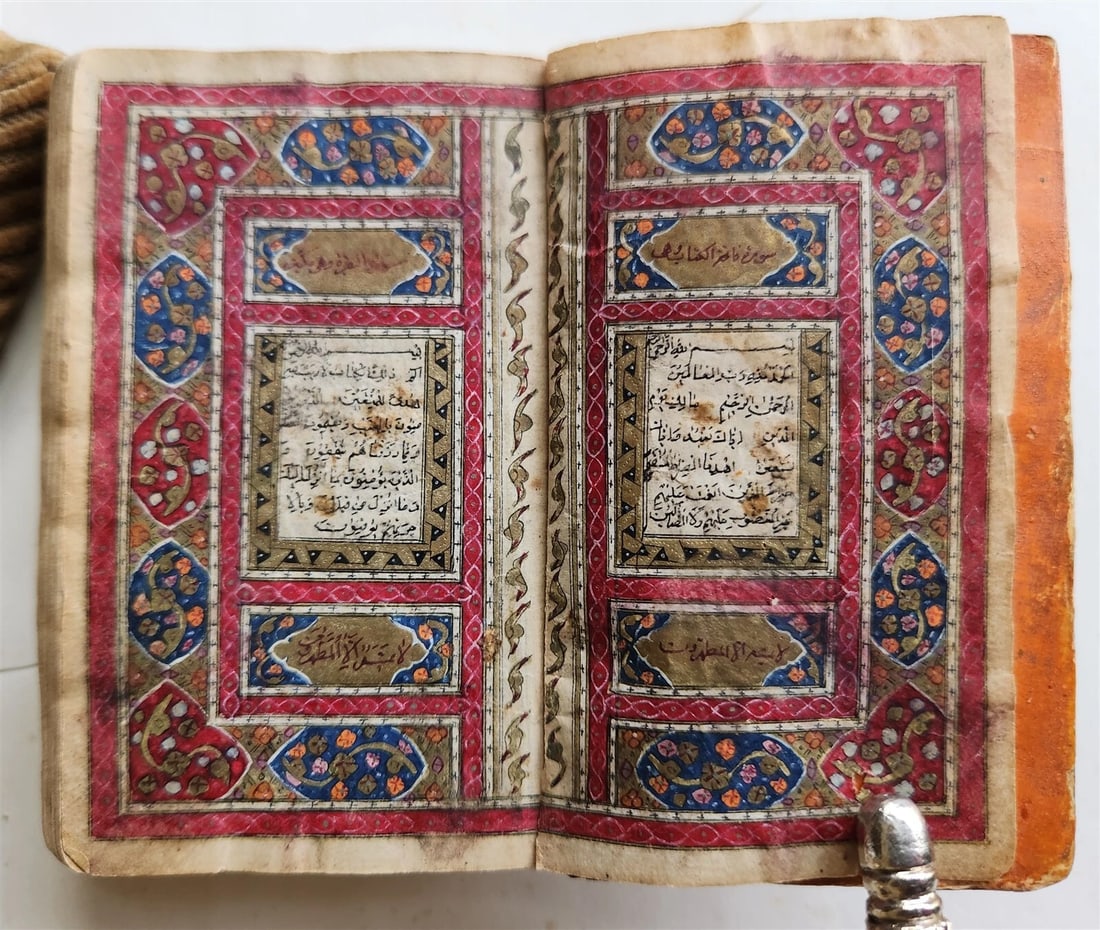 سورة فاتحة الكتاب
بسم الله الرحمن الرحيم
الحمد لله رب العالمين
الرحمن الرحيم مالك يوم
الدين اياك نعبد واياك
نستعين اهدنا الصراط المستقيم
صراط الذين انعمت عليهم
غير المغضوب عليهم ولا الضالين
لا يمسه الا المطهرون
سورة البقرة
بسم
الم ذلك الكتاب لا ريب فيه
هدى للمتقين
منون بالغيب ويقيمون
ومما رزقناهم ينفقون و
الذين يؤمنون بما انزل اليك
وما انزل من قبلك وبالا
خرة هم يوقنون
لا يمسه الا المطهرون